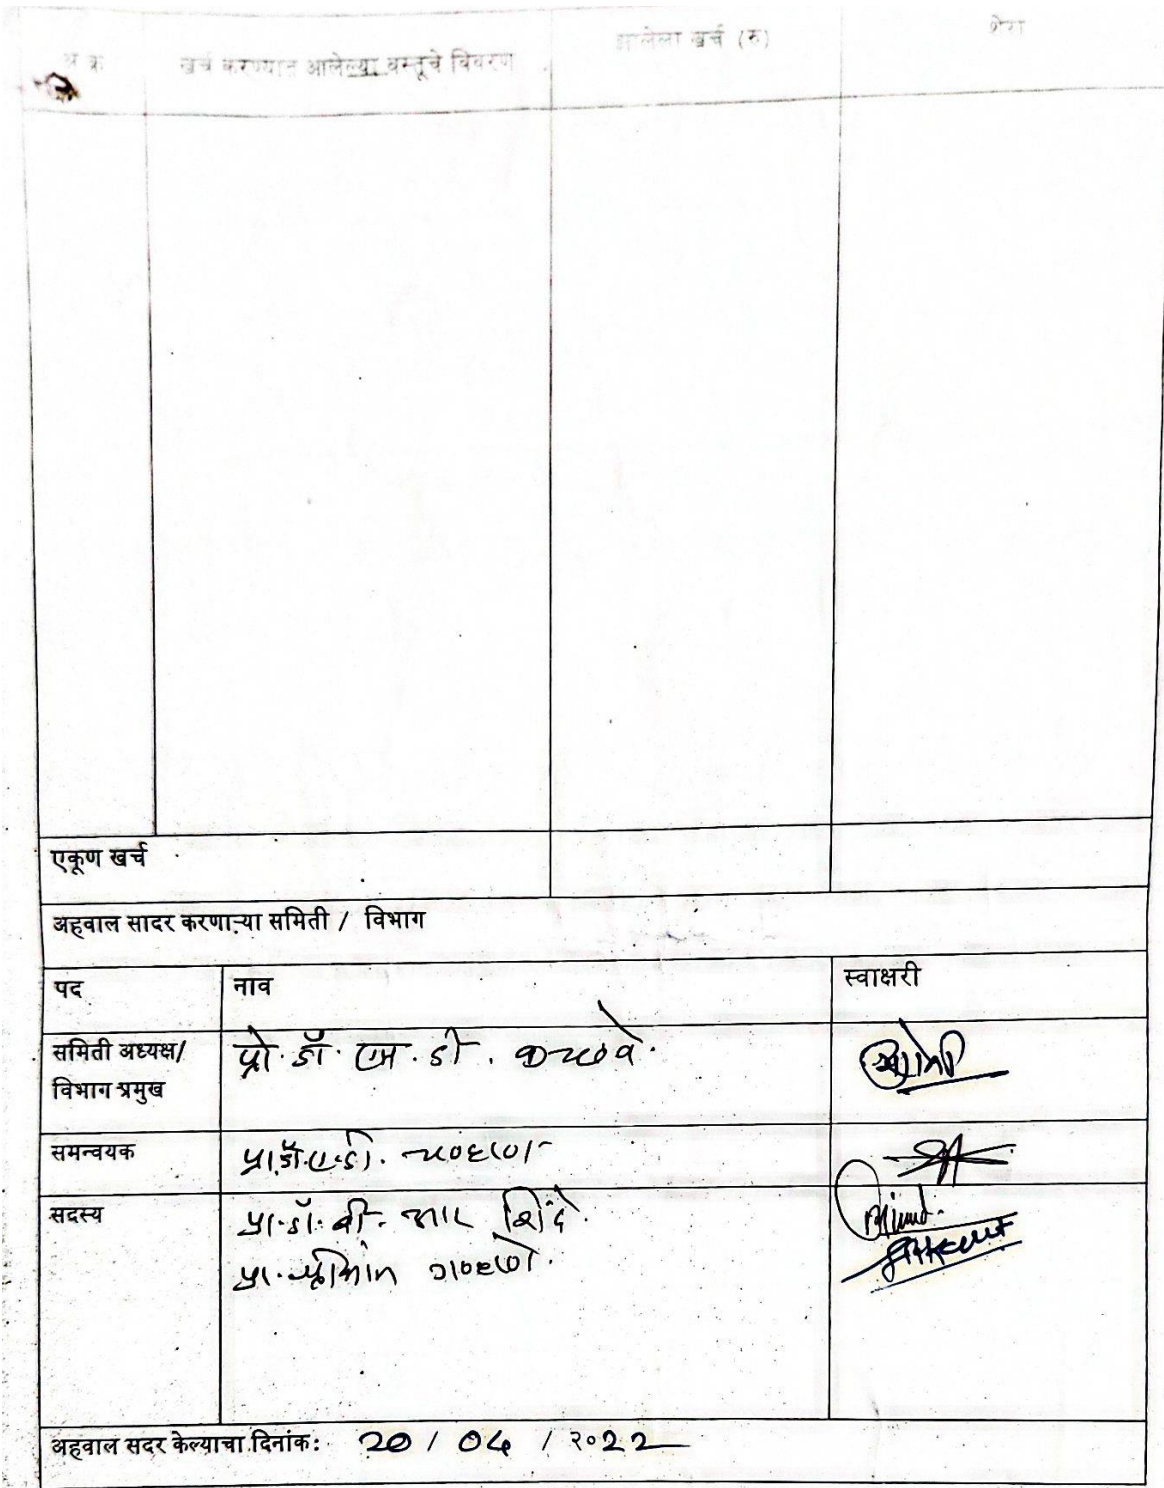 अ क्र खर्च करण्यात आलेल्या वस्तूचे विवरण झालेला खर्च (रु) शेरा
एकूण खर्च
अहवाल सादर करणाऱ्या समिती / विभाग
पद नाव स्वाक्षरी
समिती अध्यक्ष/ प्रो. डॉ. एम. डी. कच्छवे.
विभाग प्रमुख
समन्वयक प्रा.डॉ.ए.डी. चव्हाण
सदस्य प्रा. डॉ. बी. आर शिंदे.
प्रा.
अहवाल सदर केल्याचा दिनांक: 20 / 04 / २०22